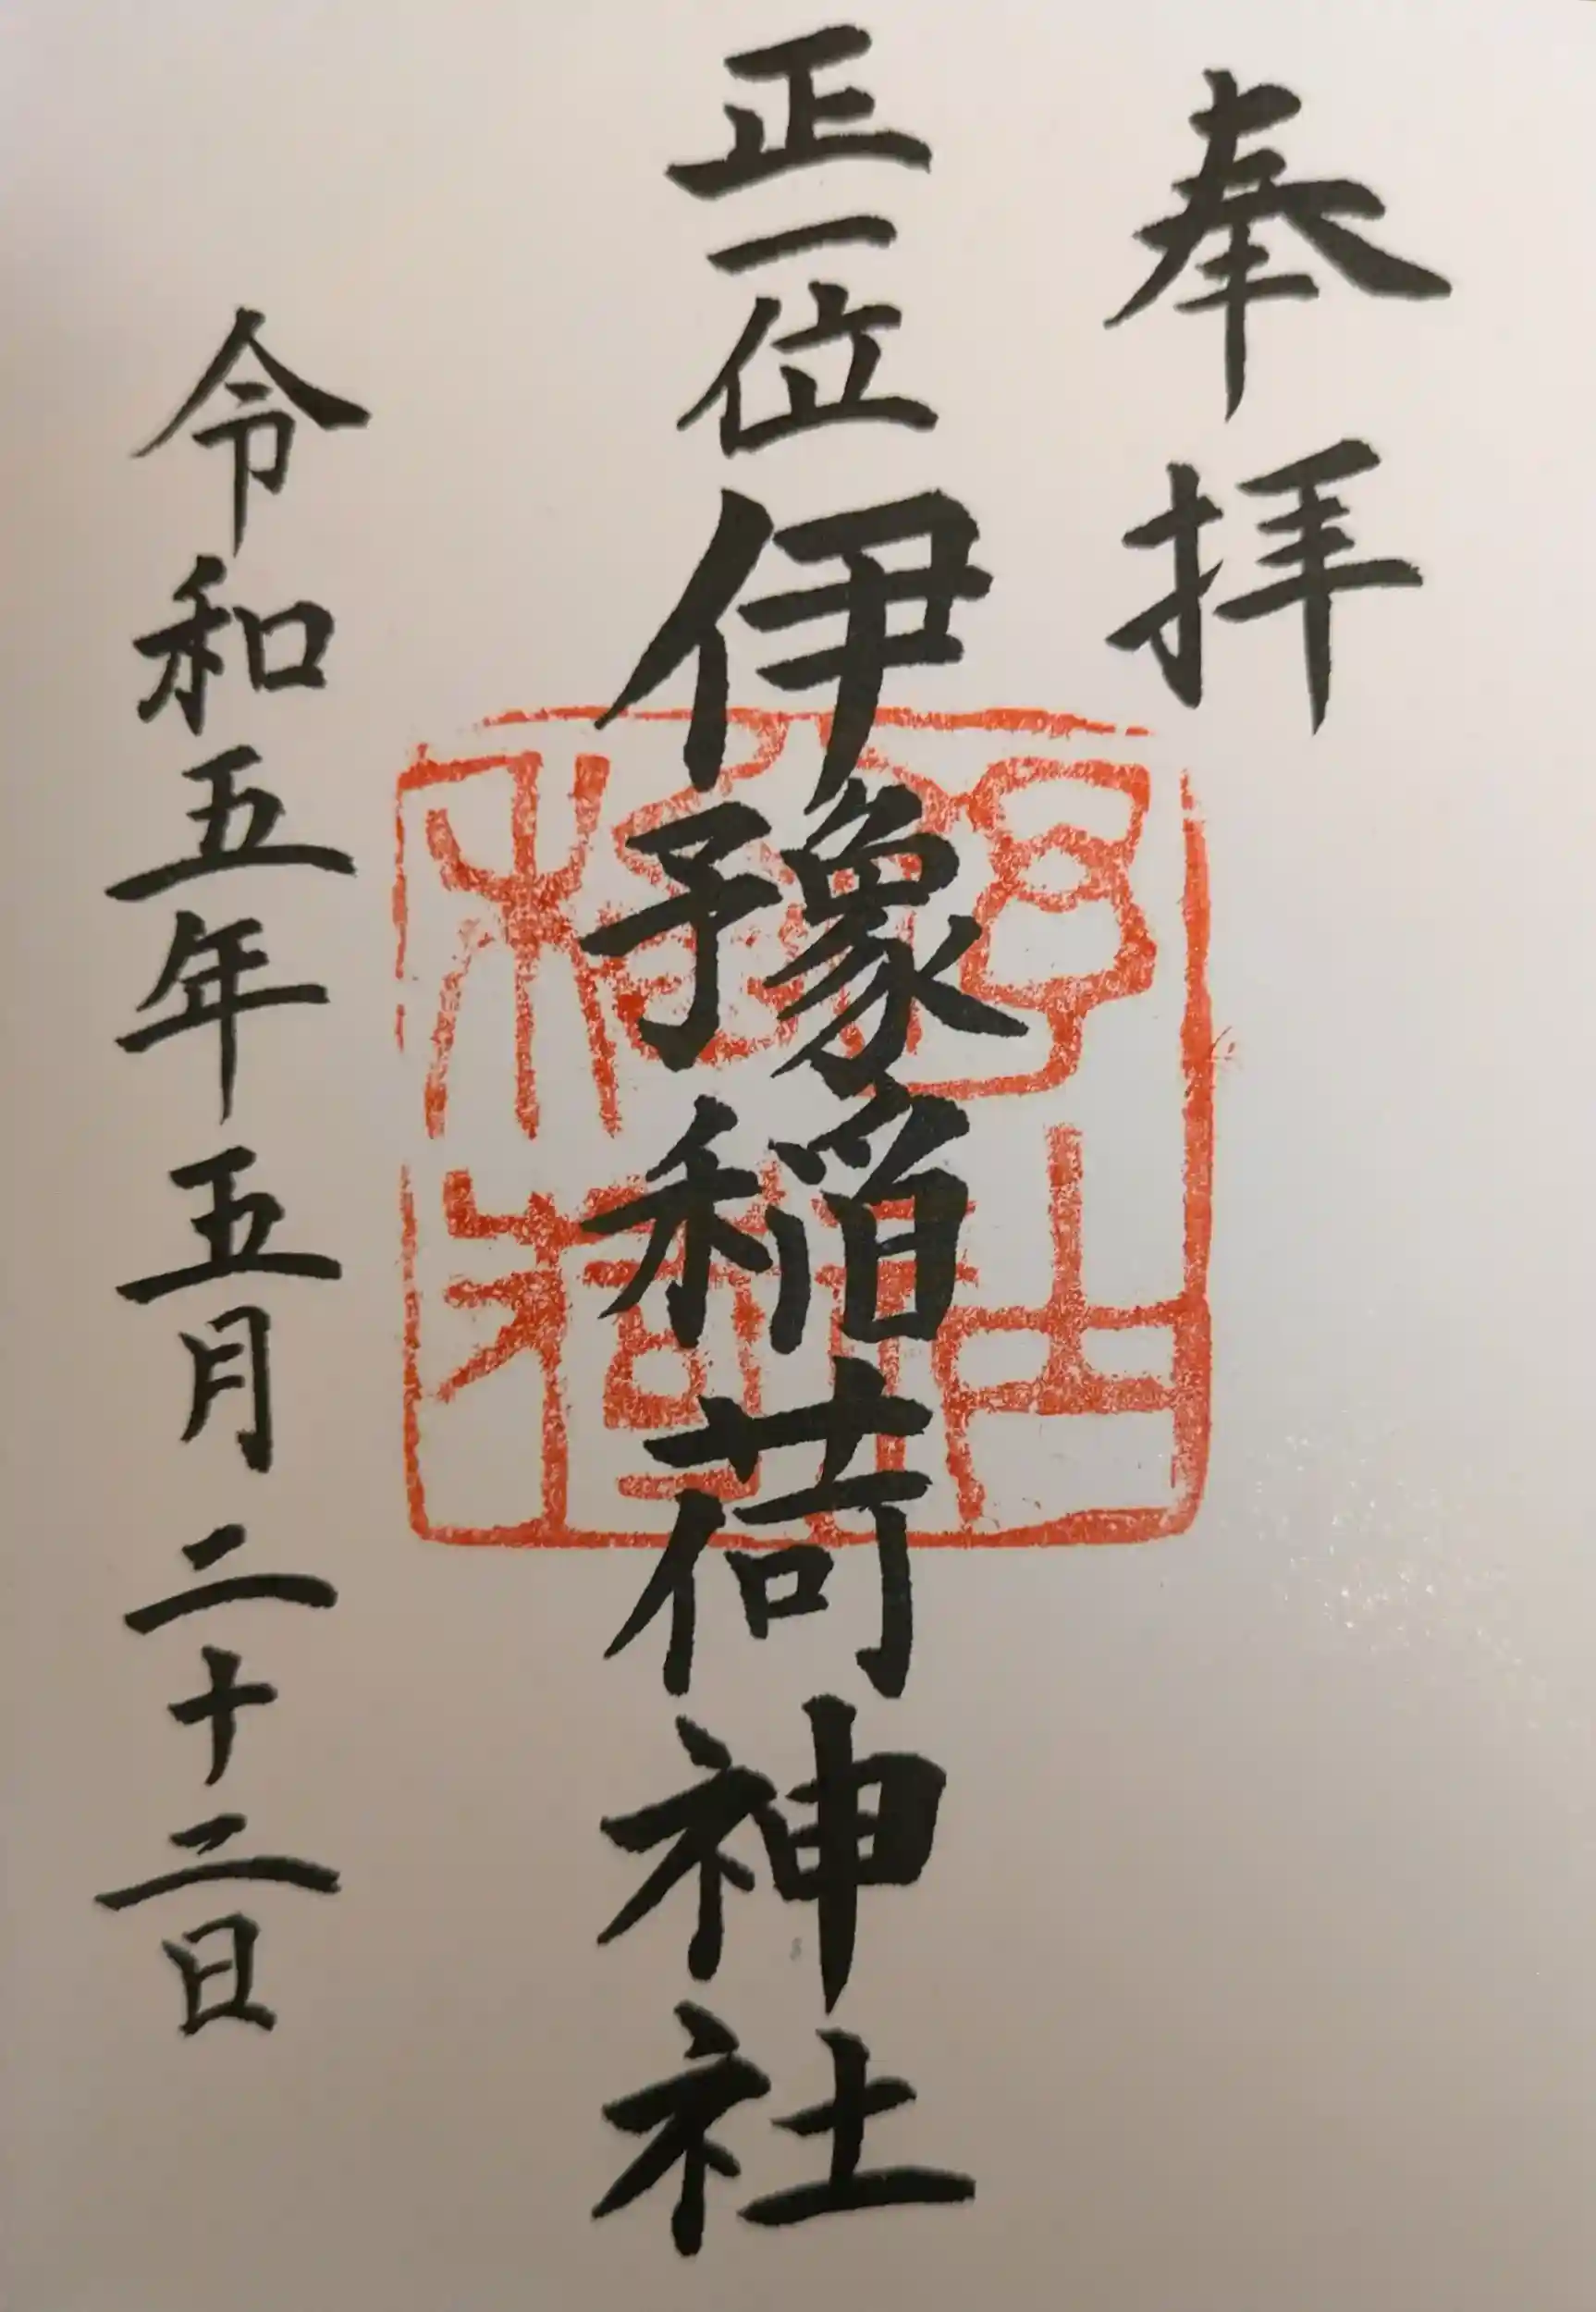 奉拝
正一位伊豫稲荷神社
令和五年五月二十二日